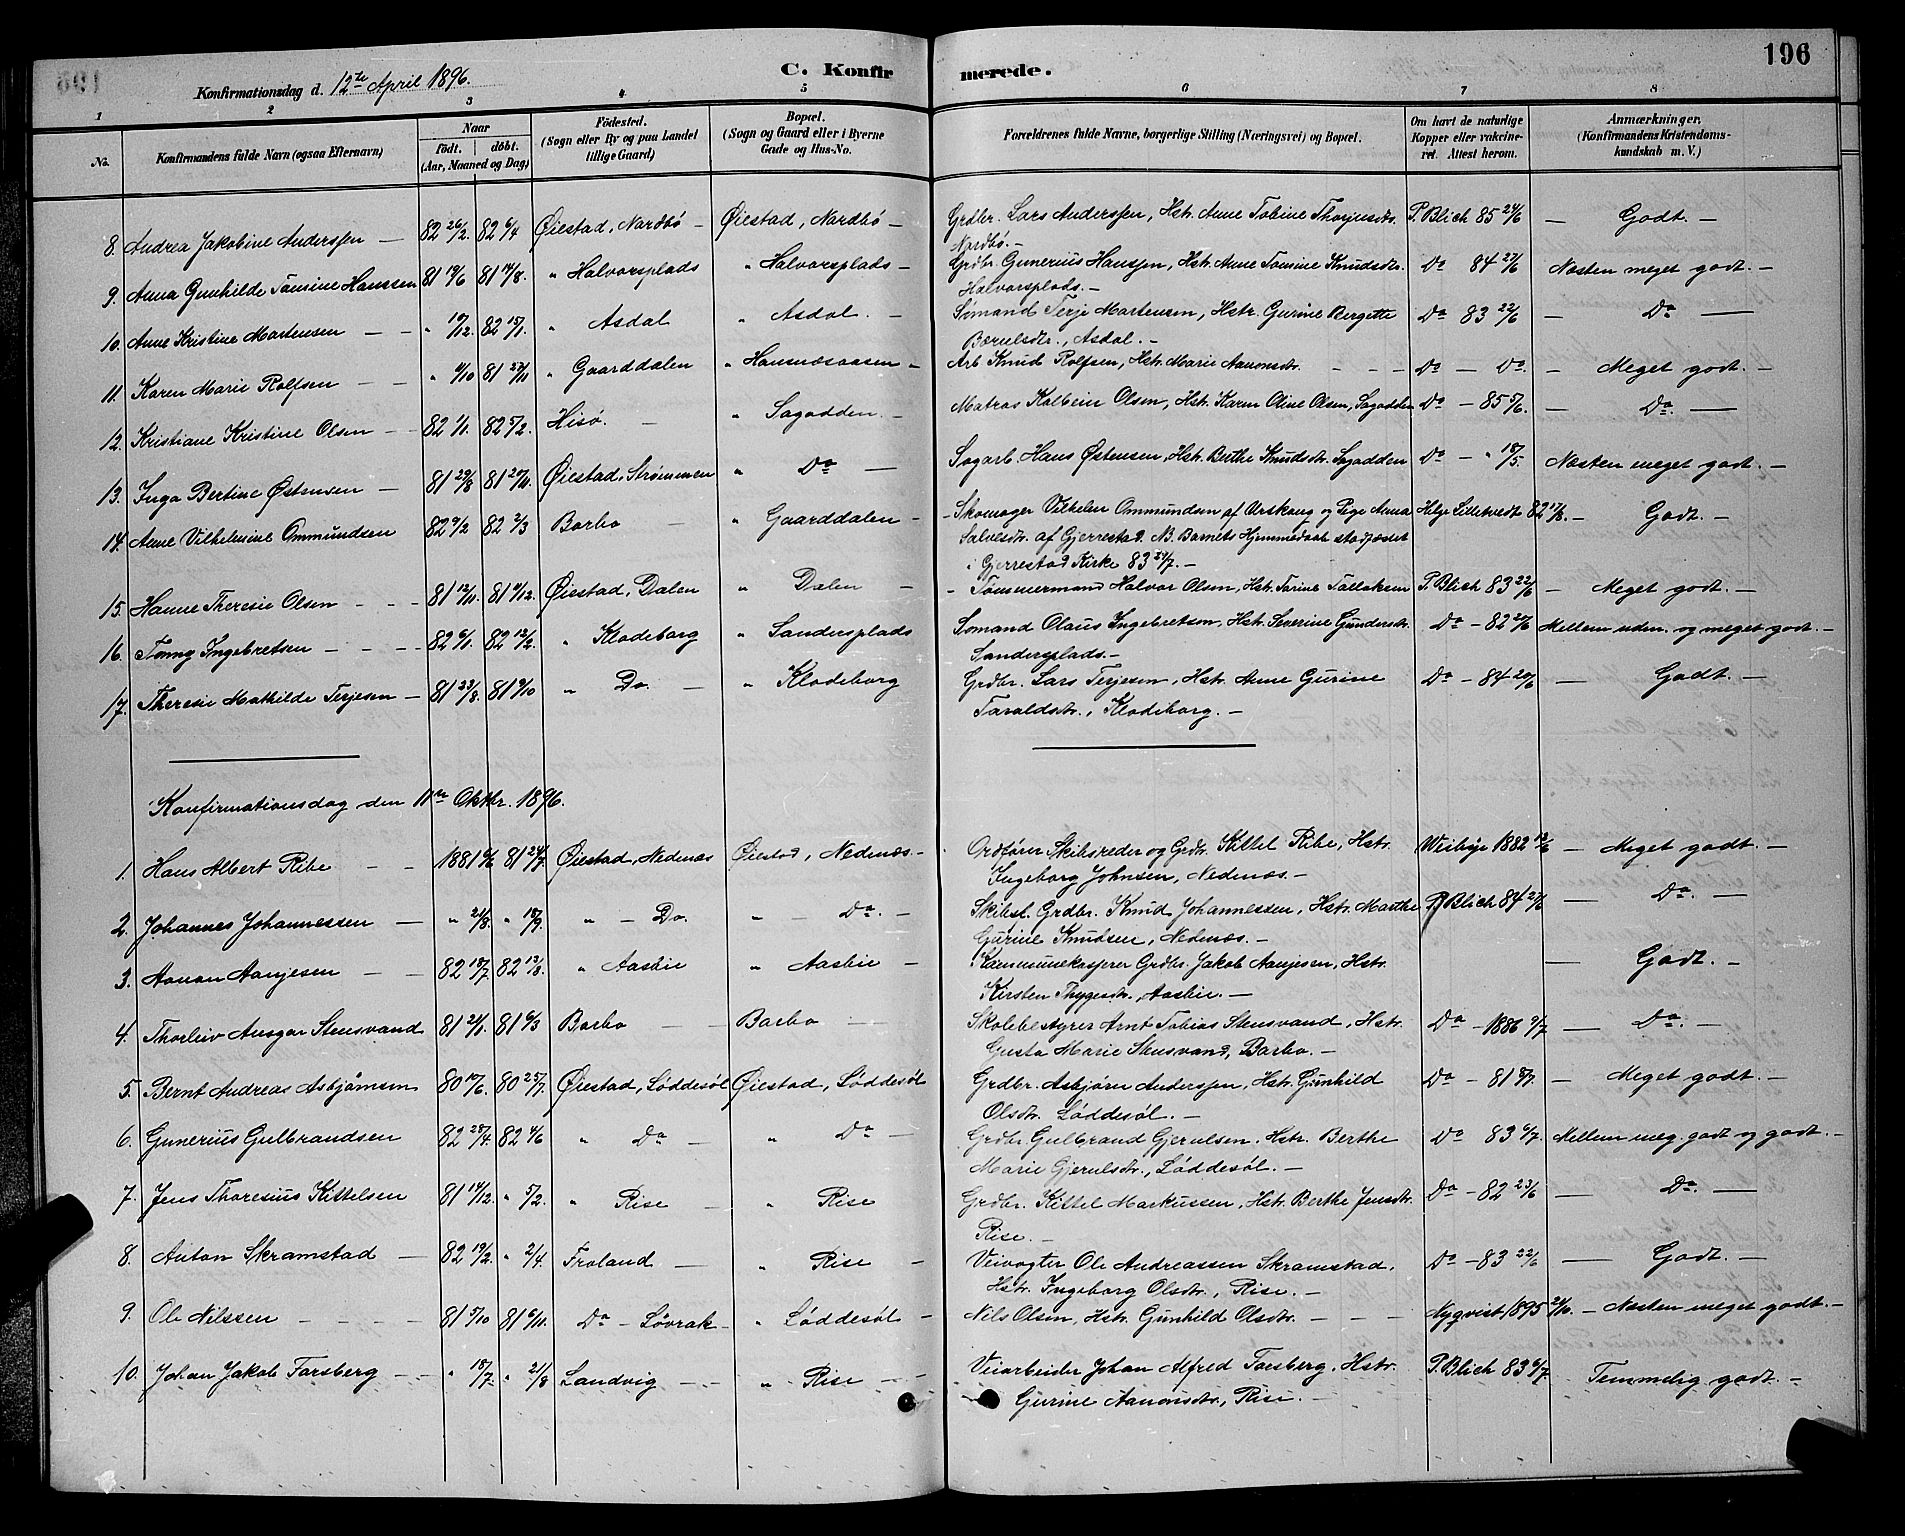 196
C. Konfirmerede.
Konfirmationsdag d. 12te April 1896.
1 2 3 4 5 6 7 8
No. Konfirmandens fulde Navn (ogsaa Efternavn) Naar født. døbt. (Aar, Maaned og Dag) Fødested. (Sogn eller By og paa Landet tillige Gaard) Bopæl. (Sogn og Gaard eller i Byerne Gade og Hus-No. Forældrenes fulde Navne, borgerlige Stilling (Næringsvei) og Bopæl. Om havt de naturlige Kopper eller vakcineret. Attest herom. Anmærkninger. (Konfirmandens Kristendomskundskab m. V.)
8. Andrea Jakobine Anderssen — 82 26/2. 82 6/4 Øiestad, Nordbø — Øiestad, Nordbø — Grdbr. Lars Anderssen, Hstr. Anne Tobine Thorjusdtr. P. Blich 85 24/6 — Godt. —
Nordbø. —
9. Anna Gunhilde Tomine Hanssen 81 19/6 81 14/8. " Halvorsplads " Halvorsplads — Grdbr. Gunerius Hanssen, Hstr. Anne Tomine Knudsdr. Do 84 27/6 Næsten meget godt. —
Halvorsplads. —
10. Anne Kristine Mortensen — — " 19/12. 82 15/1. " Asdal " Asdal. — Sømand Terje Mortensen, Hstr. Gurine Bergette Do 83 22/6 — Do —
Bærulsdr., Asdal. —
11. Karen Marie Rolfsen — — " 4/10 81 27/11 " Gaarddalen " Hansnæsaasen — Arb Knud Rolfsen, Hstr. Marie Aanonsdtr. — — — Do — Do. — Meget godt. —
12. Kristiane Kristine Olsen — — 82 1/1. 82 5/2. Hisø. — " Sagodden. — Matros Kolbein Olsen, Hstr. Karen Oline Olsen, Sagodden Do — 85 5/6. — Do. —
13. Inga Bertine Østensen — 81 29/8 81 20/11. Øiestad, Strømmen " Do — Sagarb. Hans Østensen, Hstr. Berthe Knudsdtr. Sagodden Do — " 18/5. Næsten meget godt. —
14. Anne Vilhelmine Ommundsen 82 9/2 82 2/3 Barbo — " Gaarddalen — Skomager Vilhelm Ommundsen af Urskaug og Pige Anna Helje Lilletvedt 82 17/8. — Godt. —
Salvesdtr. af Gjerrestad. NB. Barnets Hjemmedaab stadfæstet
i Gjerrestad Kirke 83 27/7. —
15. Hanne Theresie Olsen — — — 81 12/11. 81 11/12. Øiestad, Dalen " Dalen — — Tømmermand Halvor Olsen, Hstr. Tarine Tallaksen P. Blich 83 22/6 — Meget godt. —
16. Tomy Ingebretsen — — — — 82 6/1. 82 12/2. " Klodeborg " Sandersplads Sømand Olaus Ingebretsen, Hstr. Severine Gundersdtr. Do — 82 24/6 Mellem uden. og meget godt. —
Sandersplads. —
17. Theresie Mathilde Terjesen — 81 23/8. 81 9/10 " Do. — " Klodeborg Grdbr. Lars Terjesen, Hstr. Anne Gurine Do — 84 20/6 — Godt. —
Taraldsdtr., Klodeborg. —
Konfirmationsdag den 11te Oktbr. 1896.
1. Hans Albert Ribe — — 1881 6/6 81 24/7. Øiestad, Nedenæs Øiestad, Nedenæs. — Ordfører, Skibsreder og Grdbr. Kittel Ribe, Hstr. Weibye 1882 12/6 — Meget godt. —
Ingeborg Johnsen, Nedenæs. —
2. Johannes Johannessen — " 21/8. " 18/9. " — Do. " — Do. — Skibsl. Grdbr. Knud Johannessen, Hstr. Marthe P. Blich 84 27/6 — Do. —
Gurine Knudsen, Nedenæs. —
3. Aanon Aanjesen — — 82 18/7 82 13/8. " Aasbie " Aasbie — Kommunekasserer Grdbr. Jakob Aanjesen, Hstr. — Godt. —
Kirsten Thygesdtr., Aasbie. —
4. Thorleiv Ansgar Stensvand 81 21/1. 81 6/3 Barbo — — Barbo — Skolebestyrer Arnt Tobias Stensvand, Hstr. Do — 1886 9/7 — Do. —
Gusta Marie Stensvand, Barbo. —
5. Bernt Andreas Asbjørnsen 80 17/6. 80 25/7. Øiestad, Løddesøl Øiestad, Løddesøl Grdbr. Asbjørn Anderssen, Hstr. Gunhild Do — 81 8/7. — Meget godt. —
Olsdtr. Løddesøl. —
6. Gunerius Gulbrandsen 82 28/4. 82 4/6 " Do — " Do — Grdbr. Gulbrand Gjerulsen, Hstr. Berthe Do 83 6/7. Mellem meg. godt og godt. —
Marie Gjerulsdtr., Løddesøl. —
7. Jens Thoresius Kittelsen 81 14/12. " 5/2. " Rise — " Rise Grdbr. Kittel Markussen, Hstr. Berthe Jensdtr. Do — 82 23/6 — Do. —
Rise. —
8. Anton Skramstad — 82 19/2. " 2/4. Froland — " Rise — Veivogter Ole Andreassen Skramstad, Do — 83 22/6 — Godt. —
Hstr. Ingeborg Olsdtr., Rise. —
9. Ole Nilssen — — — — 81 5/10 81 6/11. Do — Løvrak — " Løddesøl — Nils Olsen, Hstr. Gunhild Olsdtr. — — — Nyqvist 1895 21/10. — Næsten meget godt. —
10. Johan Jakob Forsberg — — " 18/7 " 21/8 Landvig — — " Rise — — Veiarbeider Johan Alfred Forsberg, Hstr. P. Blich 83 6/7 Temmelig godt. —
Gurine Aanonsdtr., Rise. —